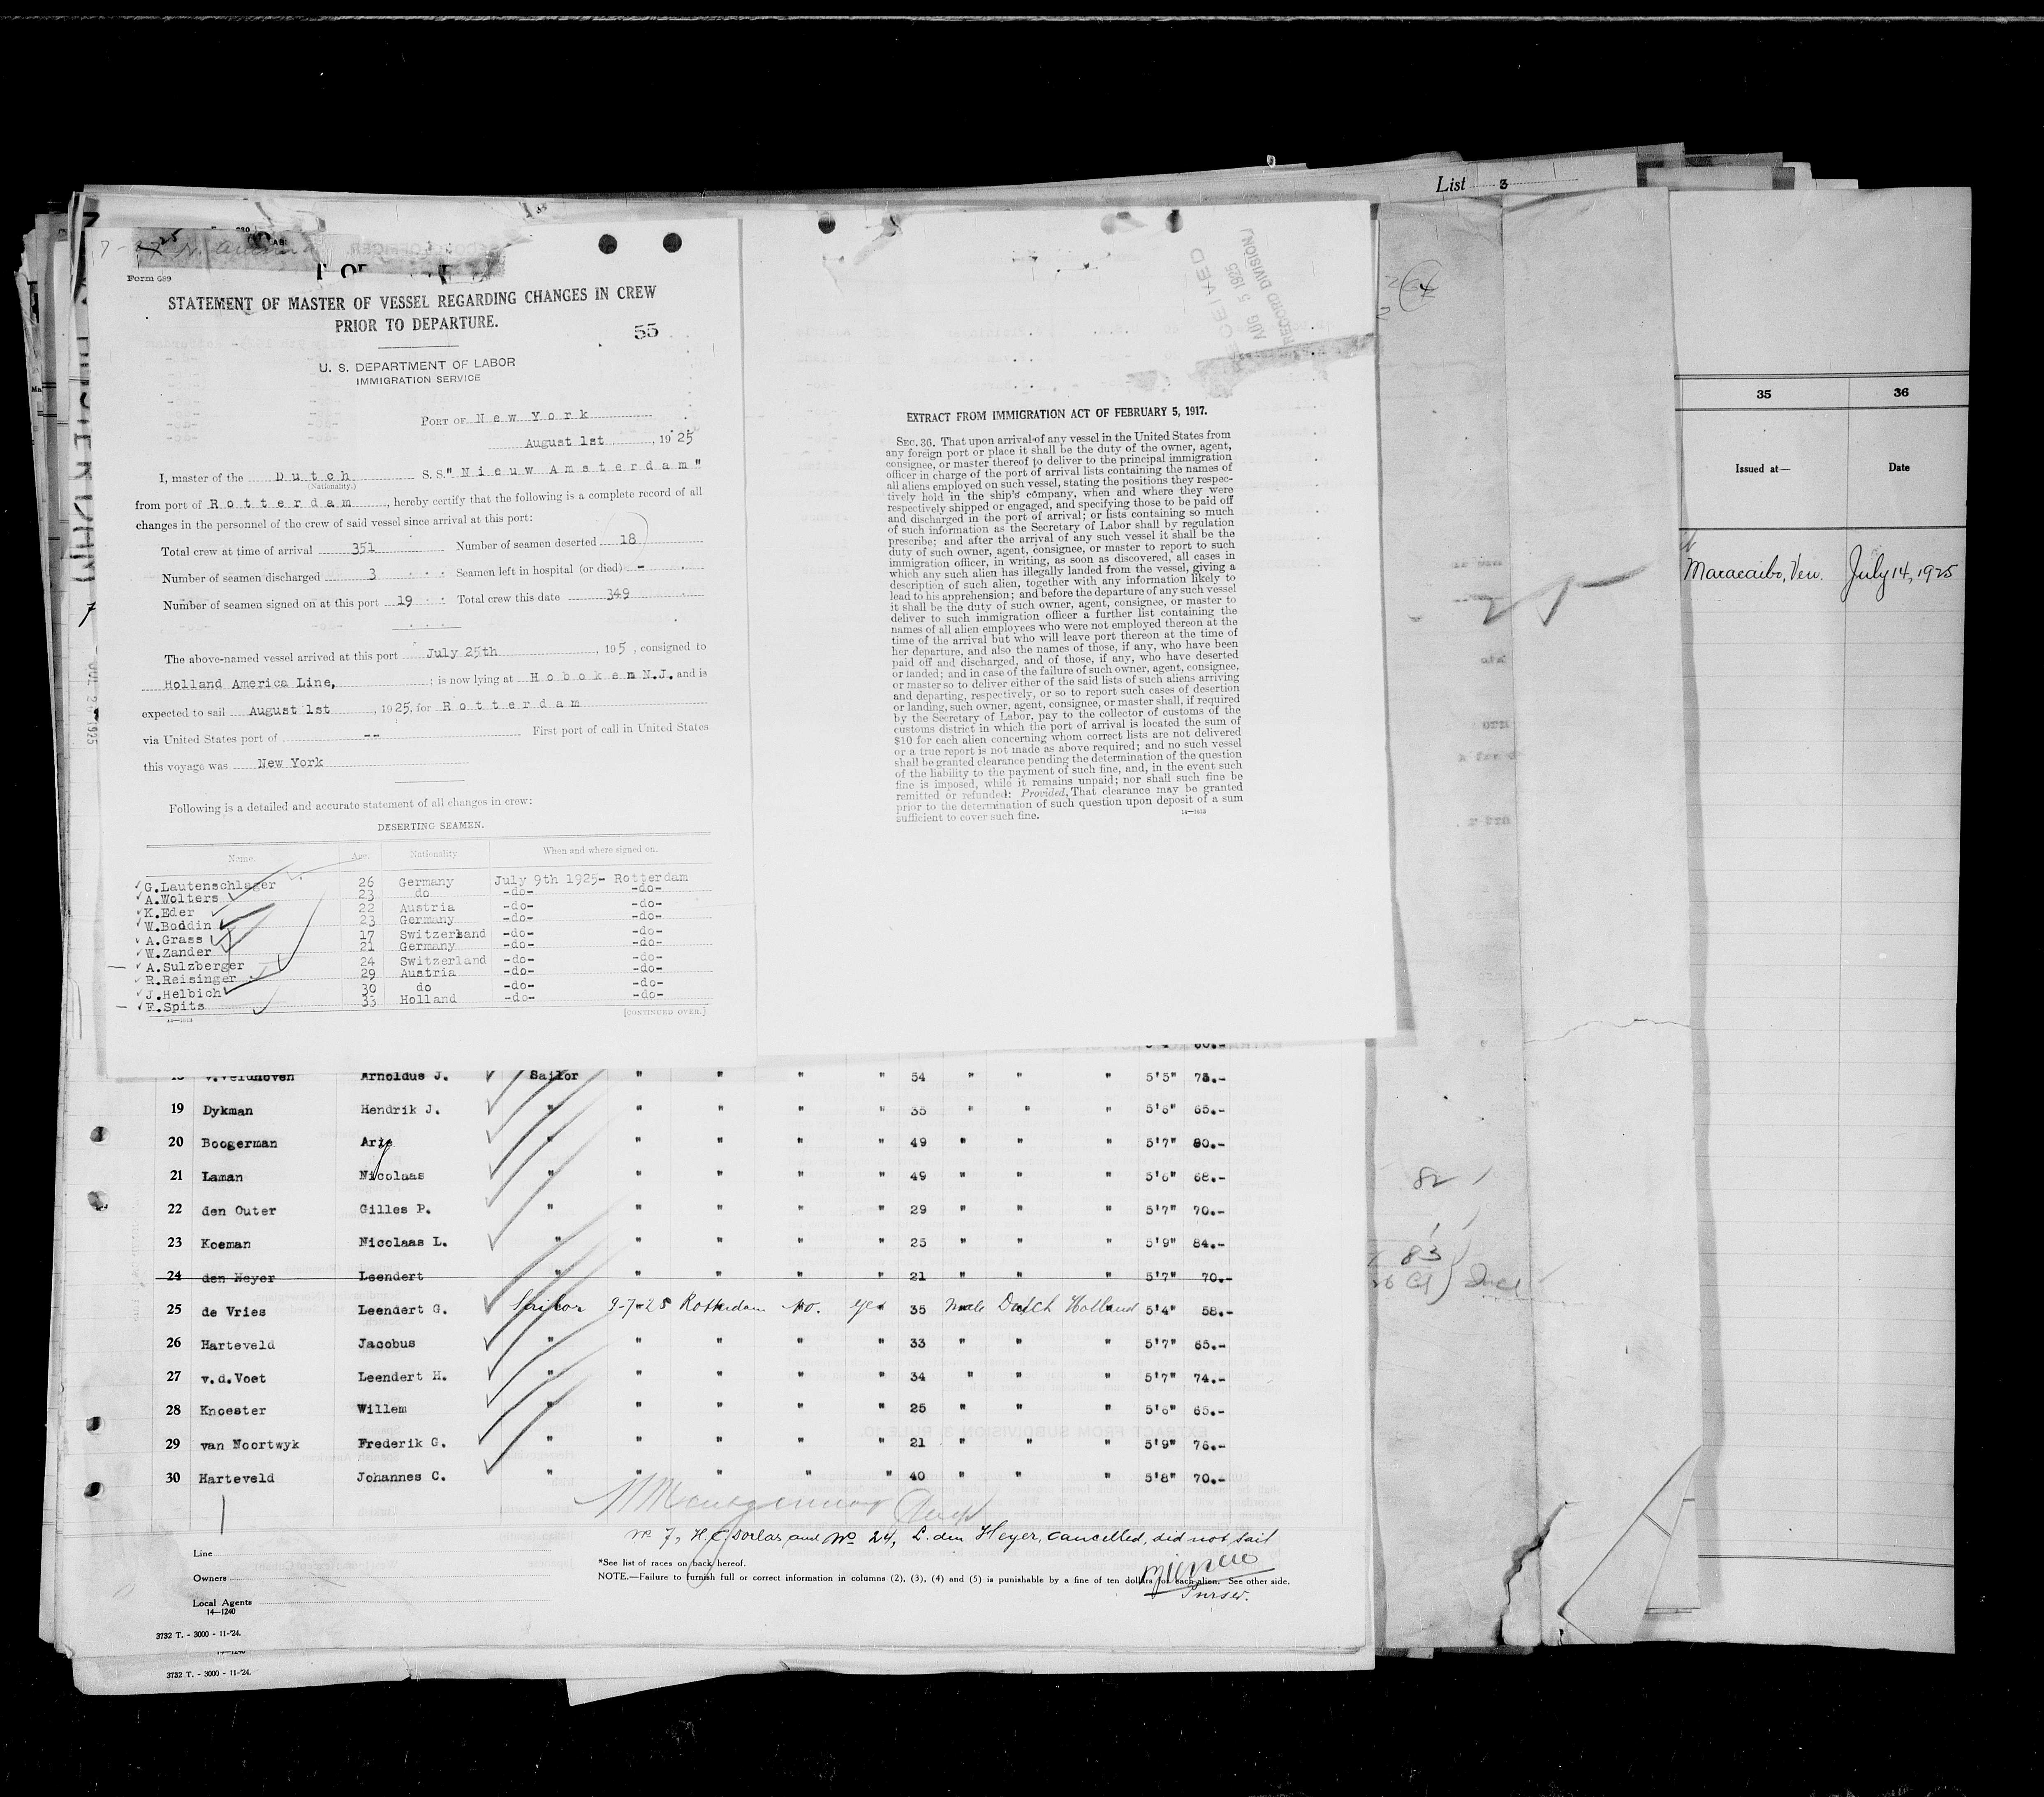 List 3
Form 689
STATEMENT OF MASTER OF VESSEL REGARDING CHANGES IN CREW
PRIOR TO DEPARTURE.
55
U. S. DEPARTMENT OF LABOR
IMMIGRATION SERVICE
PORT OF New York
August 1st, 1925
I, master of the Dutch S.S. "Nieuw Amsterdam"
(Nationality.)
from port of Rotterdam, hereby certify that the following is a complete record of all
changes in the personnel of the crew of said vessel since arrival at this port:
Total crew at time of arrival 351 Number of seamen deserted 18
Number of seamen discharged 3 Seamen left in hospital (or died) -
Number of seamen signed on at this port 19 Total crew this date 349
The above-named vessel arrived at this port July 25th, 195, consigned to
Holland America Line, ; is now lying at Hoboken N.J. and is
expected to sail August 1st, 1925, for Rotterdam
via United States port of -- First port of call in United States
this voyage was New York
Following is a detailed and accurate statement of all changes in crew:
DESERTING SEAMEN.
Name. Age. Nationality When and where signed on.
G.Lautenschlager 26 Germany July 9th 1925- Rotterdam
A.Wolters 23 do -do- -do-
K.Eder 22 Austria -do- -do-
W.Boddin 23 Germany -do- -do-
A.Grass 17 Switzerland -do- -do-
W.Zander 21 Germany -do- -do-
A.Sulzberger 24 Switzerland -do- -do-
R.Reisinger 29 Austria -do- -do-
J.Helbich 30 do -do- -do-
E.Spits 33 Holland -do- -do-
[CONTINUED OVER.]
RECEIVED
AUG 5 1925
RECORD DIVISION
EXTRACT FROM IMMIGRATION ACT OF FEBRUARY 5, 1917.
SEC. 36. That upon arrival of any vessel in the United States from
any foreign port or place it shall be the duty of the owner, agent,
consignee, or master thereof to deliver to the principal immigration
officer in charge of the port of arrival lists containing the names of
all aliens employed on such vessel, stating the positions they respec-
tively hold in the ship's company, when and where they were
respectively shipped or engaged, and specifying those to be paid off
and discharged in the port of arrival; or lists containing so much
of such information as the Secretary of Labor shall by regulation
prescribe; and after the arrival of any such vessel it shall be the
duty of such owner, agent, consignee, or master to report to such
immigration officer, in writing, as soon as discovered, all cases in
which any such alien has illegally landed from the vessel, giving a
description of such alien, together with any information likely to
lead to his apprehension; and before the departure of any such vessel
it shall be the duty of such owner, agent, consignee, or master to
deliver to such immigration officer a further list containing the
names of all alien employees who were not employed thereon at the
time of the arrival but who will leave port thereon at the time of
her departure, and also the names of those, if any, who have been
paid off and discharged, and of those, if any, who have deserted
or landed; and in case of the failure of such owner, agent, consignee,
or master so to deliver either of the said lists of such aliens arriving
and departing, respectively, or so to report such cases of desertion
or landing, such owner, agent, consignee, or master shall, if required
by the Secretary of Labor, pay to the collector of customs of the
customs district in which the port of arrival is located the sum of
$10 for each alien concerning whom correct lists are not delivered
or a true report is not made as above required; and no such vessel
shall be granted clearance pending the determination of the question
of the liability to the payment of such fine, and, in the event such
fine is imposed, while it remains unpaid; nor shall such fine be
remitted or refunded: Provided, That clearance may be granted
prior to the determination of such question upon deposit of a sum
sufficient to cover such fine.
35 36
Issued at— Date
Maracaibo, Ven. July 14, 1925
v.Veldhoven Arnoldus J. Sailor " " " " 54 " " " 5'5" 75.-
19 Dykman Hendrik J. " " " " " 35 " " " 5'6" 65.-
20 Boogerman Arie " " " " " 49 " " " 5'7" 80.-
21 Laman Nicolaas " " " " " 49 " " " 5'6" 68.-
22 den Outer Gilles P. " " " " " 29 " " " 5'7" 70.-
23 Koeman Nicolaas L. " " " " " 25 " " " 5'9" 84.-
24 den Heyer Leendert " " " " " 21 " " " 5'7" 70.-
25 de Vries Leendert G. Sailor 9-7-25 Rotterdam No. yes 35 Male Dutch Holland 5'4" 58.-
26 Harteveld Jacobus " " " " " 33 " " " 5'7" 65.-
27 v.d.Voet Leendert H. " " " " " 34 " " " 5'7" 74.-
28 Knoester Willem " " " " " 25 " " " 5'6" 65.-
29 van Noortwyk Frederik G. " " " " " 21 " " " 5'9" 76.-
30 Harteveld Johannes C. " " " " " 40 " " " 5'8" 70.-
82
83
No 7, H.C. Dorlas and No 24, L. den Heyer, cancelled, did not sail
Purser.
Line
Owners
Local Agents
14—1240
*See list of races on back hereof.
NOTE.—Failure to furnish full or correct information in columns (2), (3), (4) and (5) is punishable by a fine of ten dollars for each alien. See other side.
3732 T. - 3000 - 11-'24.
3732 T. - 3000 - 11-'24.